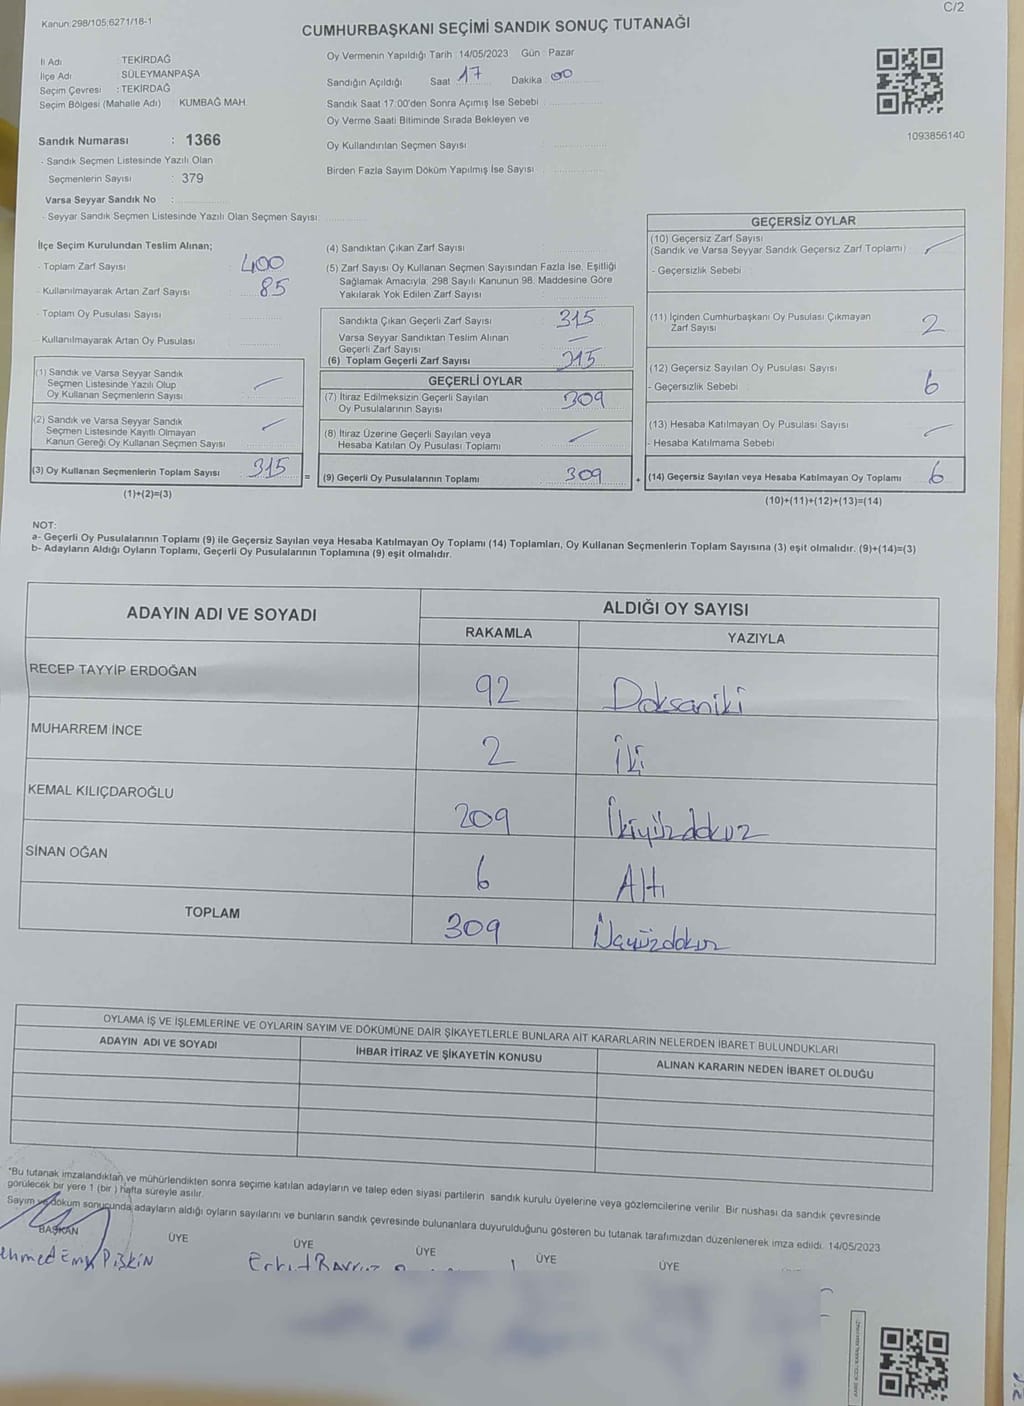 Kanun:298/105;6271/18-1
C/2
CUMHURBAŞKANI SEÇİMİ SANDIK SONUÇ TUTANAĞI
İl Adı : TEKİRDAĞ
İlçe Adı : SÜLEYMANPAŞA
Seçim Çevresi : TEKİRDAĞ
Seçim Bölgesi (Mahalle Adı) : KUMBAĞ MAH.
Oy Vermenin Yapıldığı Tarih : 14/05/2023 Gün : Pazar
Sandığın Açıldığı Saat 17 Dakika 00
Sandık Saat 17:00'den Sonra Açımış İse Sebebi
Oy Verme Saati Bitiminde Sırada Bekleyen ve
Oy Kullandırılan Seçmen Sayısı
Birden Fazla Sayım Döküm Yapılmış İse Sayısı
1093856140
Sandık Numarası : 1366
- Sandık Seçmen Listesinde Yazılı Olan
Seçmenlerin Sayısı : 379
Varsa Seyyar Sandık No :
- Seyyar Sandık Seçmen Listesinde Yazılı Olan Seçmen Sayısı:
İlçe Seçim Kurulundan Teslim Alınan;
- Toplam Zarf Sayısı 400
- Kullanılmayarak Artan Zarf Sayısı 85
- Toplam Oy Pusulası Sayısı
- Kullanılmayarak Artan Oy Pusulası
(1) Sandık ve Varsa Seyyar Sandık
Seçmen Listesinde Yazılı Olup
Oy Kullanan Seçmenlerin Sayısı
(2) Sandık ve Varsa Seyyar Sandık
Seçmen Listesinde Kayıtlı Olmayan
Kanun Gereği Oy Kullanan Seçmen Sayısı
(3) Oy Kullanan Seçmenlerin Toplam Sayısı 315
(1)+(2)=(3)
(4) Sandıktan Çıkan Zarf Sayısı
(5) Zarf Sayısı Oy Kullanan Seçmen Sayısından Fazla İse, Eşitliği
Sağlamak Amacıyla; 298 Sayılı Kanunun 98. Maddesine Göre
Yakılarak Yok Edilen Zarf Sayısı
Sandıkta Çıkan Geçerli Zarf Sayısı 315
Varsa Seyyar Sandıktan Teslim Alınan
Geçerli Zarf Sayısı
(6) Toplam Geçerli Zarf Sayısı 315
GEÇERLİ OYLAR
(7) İtiraz Edilmeksizin Geçerli Sayılan
Oy Pusulalarının Sayısı 309
(8) İtiraz Üzerine Geçerli Sayılan veya
Hesaba Katılan Oy Pusulası Toplamı
= (9) Geçerli Oy Pusulalarının Toplamı 309
GEÇERSİZ OYLAR
(10) Geçersiz Zarf Sayısı
(Sandık ve Varsa Seyyar Sandık Geçersiz Zarf Toplamı)
- Geçersizlik Sebebi :
(11) İçinden Cumhurbaşkanı Oy Pusulası Çıkmayan
Zarf Sayısı 2
(12) Geçersiz Sayılan Oy Pusulası Sayısı
- Geçersizlik Sebebi : 6
(13) Hesaba Katılmayan Oy Pusulası Sayısı
- Hesaba Katılmama Sebebi :
+ (14) Geçersiz Sayılan veya Hesaba Katılmayan Oy Toplamı 6
(10)+(11)+(12)+(13)=(14)
NOT:
a- Geçerli Oy Pusulalarının Toplamı (9) ile Geçersiz Sayılan veya Hesaba Katılmayan Oy Toplamı (14) Toplamları, Oy Kullanan Seçmenlerin Toplam Sayısına (3) eşit olmalıdır. (9)+(14)=(3)
b- Adayların Aldığı Oyların Toplamı, Geçerli Oy Pusulalarının Toplamına (9) eşit olmalıdır.
ADAYIN ADI VE SOYADI
ALDIĞI OY SAYISI
RAKAMLA
YAZIYLA
RECEP TAYYİP ERDOĞAN 92 Doksaniki
MUHARREM İNCE 2 İki
KEMAL KILIÇDAROĞLU 209 İkiyüzdokuz
SİNAN OĞAN 6 Altı
TOPLAM 309 Üçyüzdokuz
OYLAMA İŞ VE İŞLEMLERİNE VE OYLARIN SAYIM VE DÖKÜMÜNE DAİR ŞİKAYETLERLE BUNLARA AİT KARARLARIN NELERDEN İBARET BULUNDUKLARI
ADAYIN ADI VE SOYADI
İHBAR İTİRAZ VE ŞİKAYETİN KONUSU
ALINAN KARARIN NEDEN İBARET OLDUĞU
*Bu tutanak imzalandıktan ve mühürlendikten sonra seçime katılan adayların ve talep eden siyasi partilerin sandık kurulu üyelerine veya gözlemcilerine verilir. Bir nüshası da sandık çevresinde
görülecek bir yere 1 (bir) hafta süreyle asılır.
Sayım ve döküm sonucunda adayların aldığı oyların sayılarını ve bunların sandık çevresinde bulunanlara duyurulduğunu gösteren bu tutanak tarafımızdan düzenlenerek imza edildi. 14/05/2023
BAŞKAN ÜYE ÜYE ÜYE ÜYE ÜYE
PİŞKİN